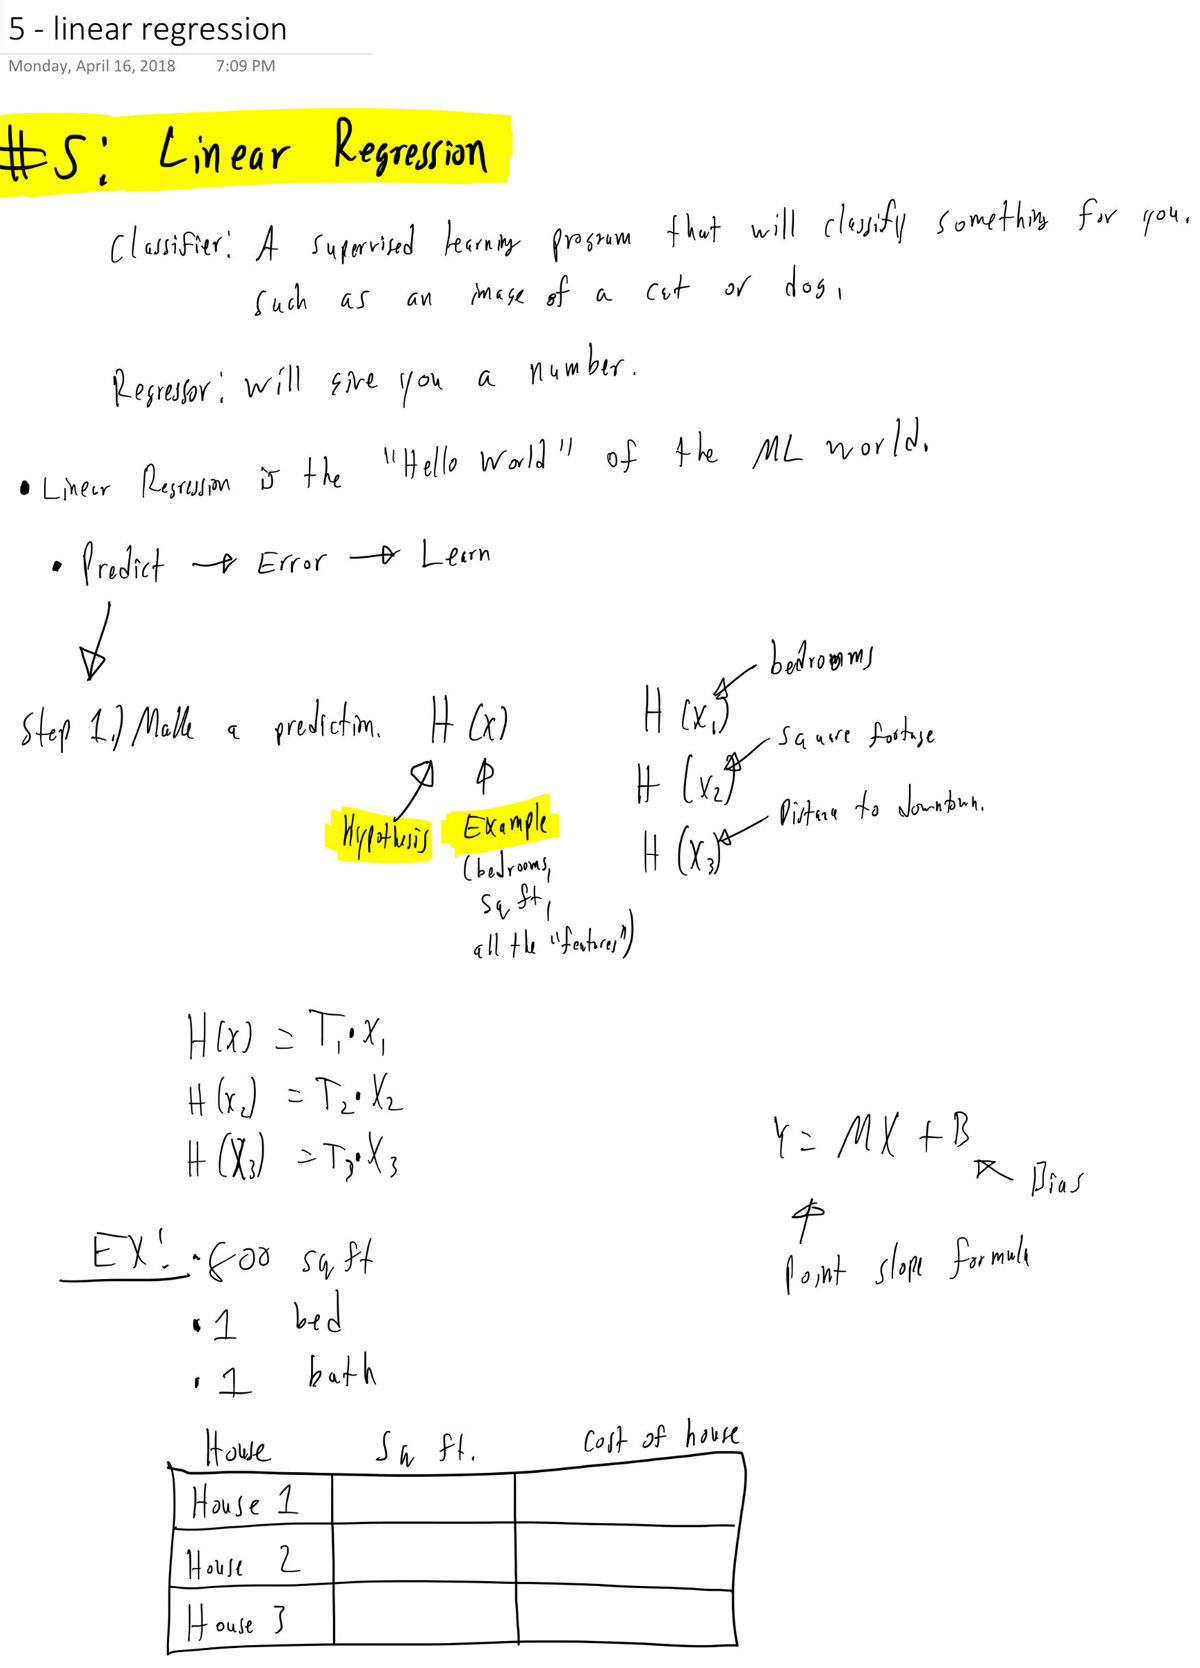 5 - linear regression
Monday, April 16, 2018 7:09 PM
#5: Linear Regression
Classifier: A supervised learning program that will classify something for you.
Such as an image of a cat or dog.
Regressor: will give you a number.
• Linear Regression is the "Hello World" of the ML world.
• Predict → Error → Learn
Step 1.) Make a prediction. H (x)
Hypothesis
Example
(bedrooms,
sq ft,
all the "features")
H (x₁) bedrooms
H (x₂) Square footage
H (x₃) Distance to downtown.
H(x) = T₁·X₁
H(x₂) = T₂·X₂
H(X₃) = T₃·X₃
Y = MX + B
Bias
Point slope formula
EX: • 800 sq ft
• 1 bed
• 1 bath
House Sq ft. Cost of house
House 1
House 2
House 3